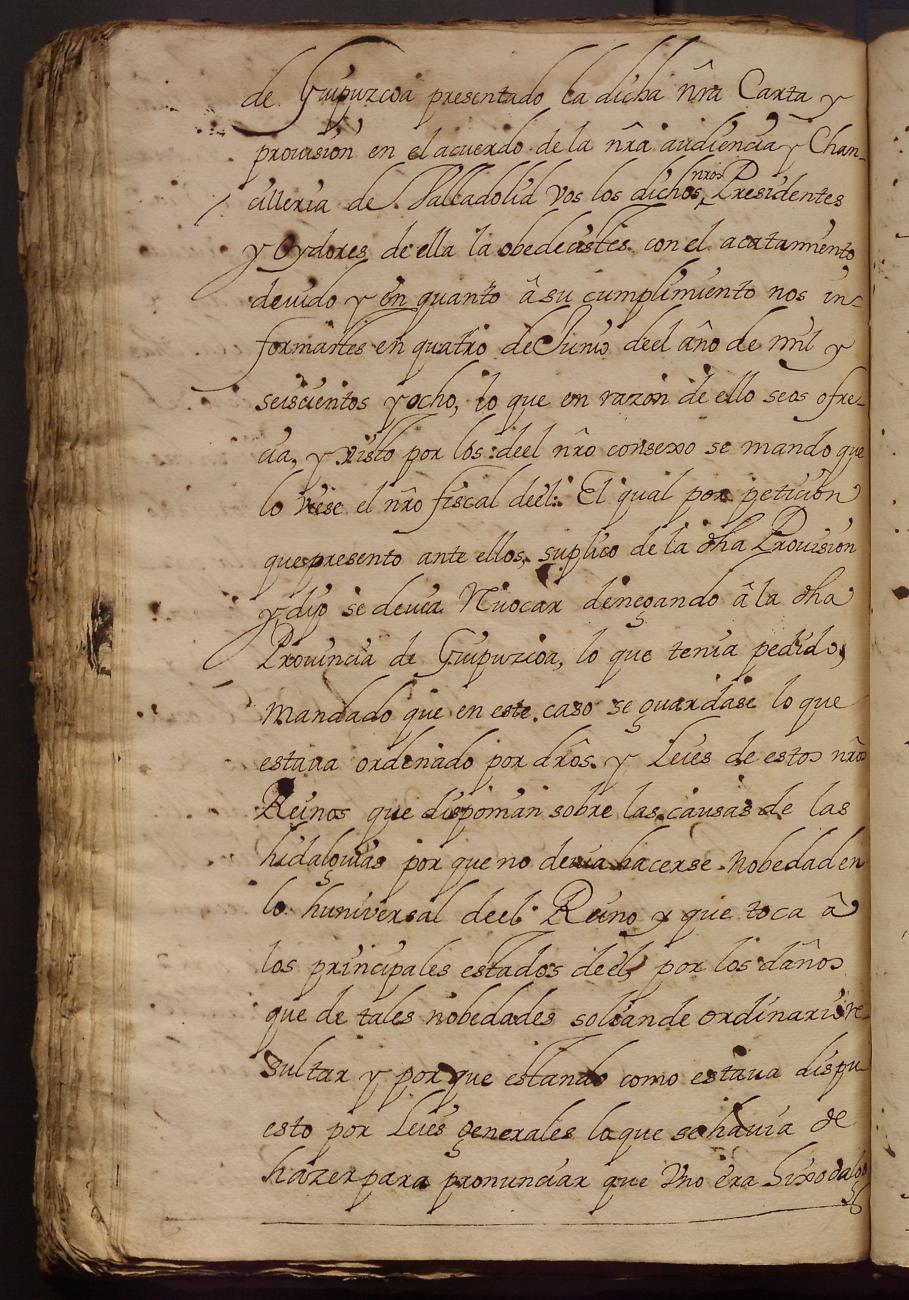 de Guipuzcoa presentado la dicha nr̃a Carta y
provision en el acuerdo de la nr̃a audiencia y Chan-
cilleria de Valladolid Vos los dichos nr̃os Presidentes
y Oydores de ella la obedecistes con el acatamiento
devido y en quanto â su cumplimiento nos in-
formastes en quatro de Junio deel âño de mil y
seiscientos y ocho, lo que en razon de ello seos ofre-
cia, y visto por los deel nr̃o consexo se mando que
lo viese el nr̃o fiscal deel: El qual por peticion
que presento ante ellos, suplico de la dha Provision
y dijo se devia Revocar denegando â la dha
Provincia de Guipuzcoa, lo que tenia pedido,
mandado que en este caso se guardase lo que
estava ordenado por dr̃os. y Leies de estos nr̃os
Reinos que disponian sobre las causas de las
hidalguias por que no devia hacerse nobedad en
lo huniversal deel Reino y que toca â
los principales estados deel, por los dãños
que de tales nobedades solian de ordinario re-
sultar y por que estando como estava dispu-
esto por Leies generales lo que se havia de
hazer para pronunciar que Vno era hixodalgo